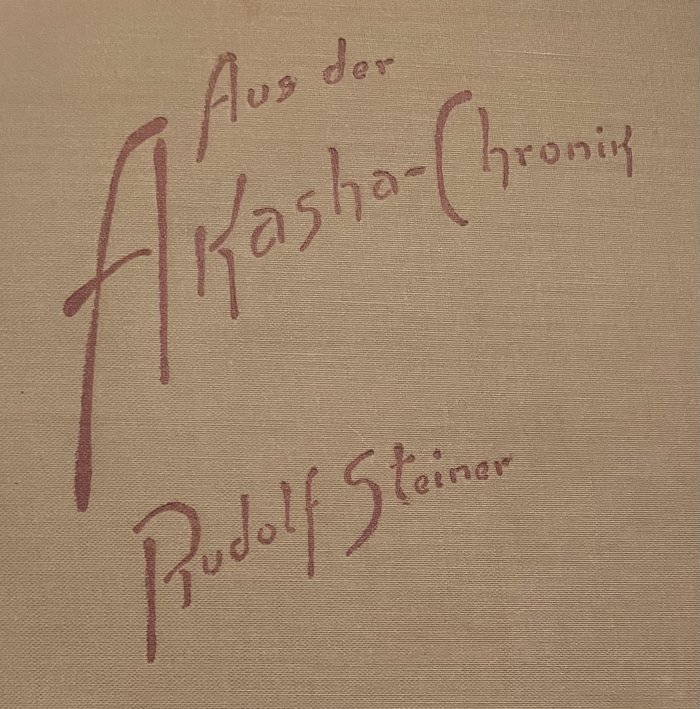 Aus der
Akasha-Chronik
Rudolf Steiner